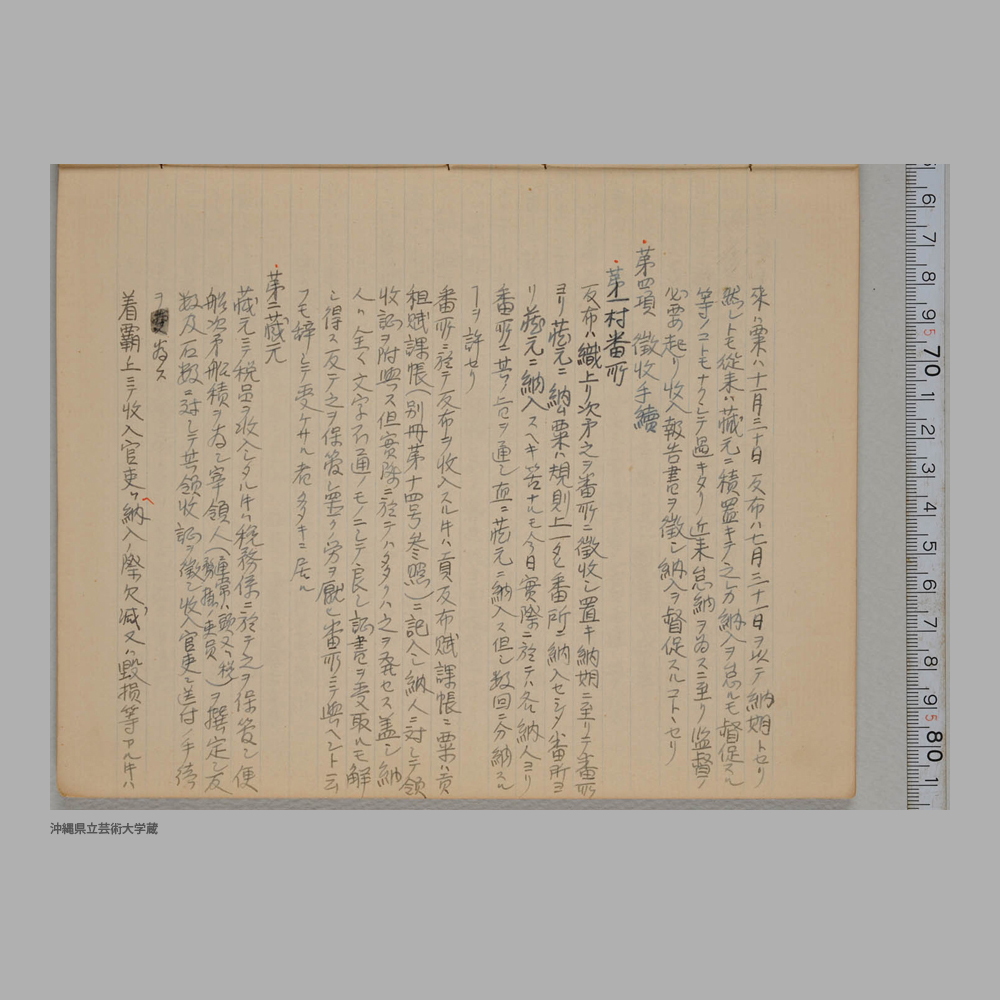 来ハ粟ハ十一月三十日反布ハ七月三十一日ヲ以テ納期トセリ
然レトモ従来ハ蔵元ニ積置キテ之カ納入ヲ怠ルモ督促スル
等ノコトモナクシテ過キタリ近来怠納ヲ為スニ至リ監督ノ
必要起リ収入報告書ヲ徴シ納入ヲ督促スルコトヽセリ
第四項 徴收手續
第一村番所
反布ハ織上リ次第之ヲ番所ニ徴收シ置キ納期ニ至リテ番所
ヨリ蔵元ニ納ム粟ハ規則上一タヒ番所ニ納入セシメ番所ヨ
リ蔵元ニ納入スヘキ筈ナルモ今日実際ニ於テハ各納人ヨリ
番所ニ其ノ上ヲ通シ直ニ蔵元ニ納入ス但シ数回ニ分納スル
ヿヲ許セリ
番所ニ於テ反布ヲ收入スル片ハ貢反布賦課帳ニ粟ハ貢
租賦課帳(別冊第十四号参照)ニ記入シ納人ニ対シテ領
收証ヲ附與ス但實際ニ於テハ多クハ之ヲ発セス盖シ納
人ハ全ク文字不通ノモノニシテ良シ証書ヲ受取ルモ解
シ得ス反テ之ヲ保管シ置クノ労ヲ厭ヒ番所ニテ與ヘント云
フモ辞シテ受ケサル者多キニ居ル
第二蔵元
蔵元ニテ税品ヲ收入シタル片ハ税務係ニ於テ之ヲ保管シ便
船次第船積ヲ為シ宰領人(通常ハ頭又ハ税務掛ノ吏員)ヲ撰定シ反
数及石数ニ対シテ其領收証ヲ徴シ收入官吏ニ送付ノ手續
ヲ為ス
着覇上ニテ收入官吏ヘ納入ノ際欠減又ハ毀損等アル片ハ
6 7 8 9 5 70 1 2 3 4 5 6 7 8 9 5 80 1
沖縄県立芸術大学蔵